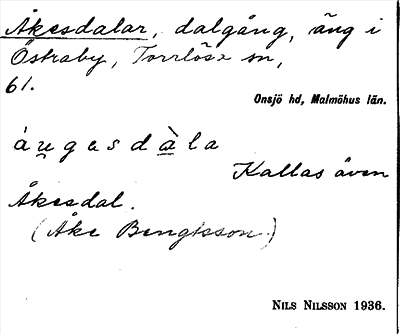 Åkesdalar, dalgång, äng i
Östraby, Torrlösa sn,
61.
Onsjö hd, Malmöhus län.
áu̯gesdàla
Kallas även
Åkesdal.
(Åke Bengtsson.)
NILS NILSSON 1936.